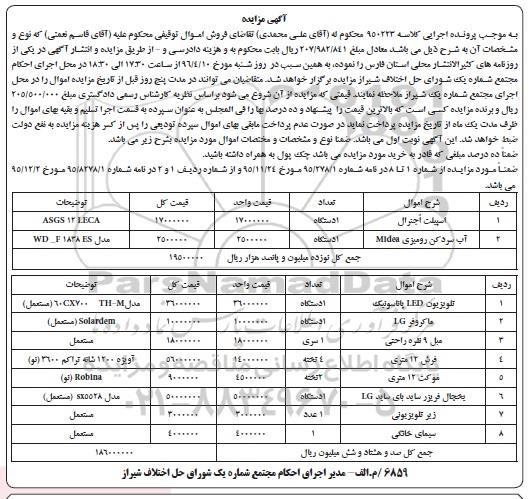 آگهی مزایده
به موجب پرونده اجرایی کلاسه ۹۵۰۲۲۳ محکوم له (آقای علی محمدی) تقاضای فروش اموال توقیفی محکوم علیه (آقای قاسم نعمتی) که نوع و
مشخصات آن به شرح ذیل می باشد معادل مبلغ ۲۰۷/۹۸۲/۸۴۱ ریال بابت محکوم به و هزینه دادرسی و - از طریق مزایده و انتشار آگهی در یکی از
روزنامه های کثیرالانتشار محلی استان فارس را نموده، به همین سبب در روز شنبه مورخ ۹۶/۴/۱۰ از ساعت ۱۷:۳۰ الی ۱۸:۳۰ در محل اجرای احکام
مجتمع شماره یک شورای حل اختلاف شیراز مزایده برگزار خواهد شد. متقاضیان می توانند در مدت پنج روز قبل از تاریخ مزایده اموال را در محل
اجرای مجتمع شماره یک شیراز ملاحظه نمایند. قیمتی که مزایده از آن شروع می شود براساس نظریه کارشناس رسمی دادگستری مبلغ ۲۰۵/۵۰۰/۰۰۰
ریال و برنده مزایده کسی است که بالاترین قیمت را پیشنهاد و ده درصد بها را فی المجلس به عنوان سپرده به قسمت اجرا تسلیم و بقیه بهای اموال را
ظرف مدت یک ماه از تاریخ مزایده پرداخت نماید در صورت عدم پرداخت مابقی بهای اموال سپرده تودیعی را پس از کسر هزینه مزایده به نفع دولت
ضبط خواهد شد. این آگهی نوبت اول می باشد. ضمنا نوع و مشخصات و مختصات اموال مورد مزایده بشرح زیر می باشد.
ضمناً ده درصد مبلغی که قادر به خرید مورد مزایده می باشد چک پول به همراه داشته باشید.
ضمناً مورد مزایده از شماره ۱ تا ۸ در نامه شماره ۹۵/۲۷۸/۱ مورخ ۹۵/۱۱/۲۴ و از شماره ردیف ۱ و ۲ در نامه شماره ۹۵/۸۲۷۸/۱ مورخ ۹۵/۱۲/۲
می باشد.
ردیف شرح اموال تعداد قیمت واحد قیمت کل توضیحات
۱ اسپیلت آجنرال ۱دستگاه ۱۷۰۰۰۰۰۰ ۱۷۰۰۰۰۰۰ ASGS ۱۲ LECA
۲ آب سردکن رومیزی Midea ۱دستگاه ۲۵۰۰۰۰۰ ۲۵۰۰۰۰۰ مدل WD _F ۱۸۳۸ ES
جمع کل نوزده میلیون و پانصد هزار ریال ۱۹۵۰۰۰۰۰
ردیف شرح اموال تعداد قیمت واحد قیمت کل توضیحات
۱ تلویزیون LED پاناسونیک ۱دستگاه ۳۶۰۰۰۰۰۰ ۳۶۰۰۰۰۰۰ مدل TH-M ۶۰CX۷۰۰ (مستعمل)
۲ ماکروفر LG ۱دستگاه ۱۰۰۰۰۰۰۰ ۱۰۰۰۰۰۰۰ Solardem (مستعمل)
۳ مبل ۹ نفره راحتی ۱ سری ۱۸۰۰۰۰۰۰ ۱۸۰۰۰۰۰۰ مستعمل
۴ فرش ۱۲ متری ۴ تخته ۱۴۰۰۰۰۰۰ ۵۶۰۰۰۰۰۰ آویژه ۱۲۰۰ شانه تراکم ۳۶۰۰ (نو)
۵ موکت ۱۲ متری ۲تخته ۴۵۰۰۰۰۰ ۹۰۰۰۰۰۰ Robina (نو)
۶ یخچال فریزر ساید بای ساید LG ۱دستگاه ۵۰۰۰۰۰۰۰ ۵۰۰۰۰۰۰۰ مدل sx۵۵۲۸ (مستعمل)
۷ زیر تلویزیونی ۱ عدد ۳۰۰۰۰۰۰ ۳۰۰۰۰۰۰ مستعمل
۸ سیمای خانگی ۱ ۴۰۰۰۰۰۰ ۴۰۰۰۰۰۰ مستعمل
جمع کل صد و هشتاد و شش میلیون ریال ۱۸۶۰۰۰۰۰۰
۶۸۵۹ /م.الف- مدیر اجرای احکام مجتمع شماره یک شورای حل اختلاف شیراز